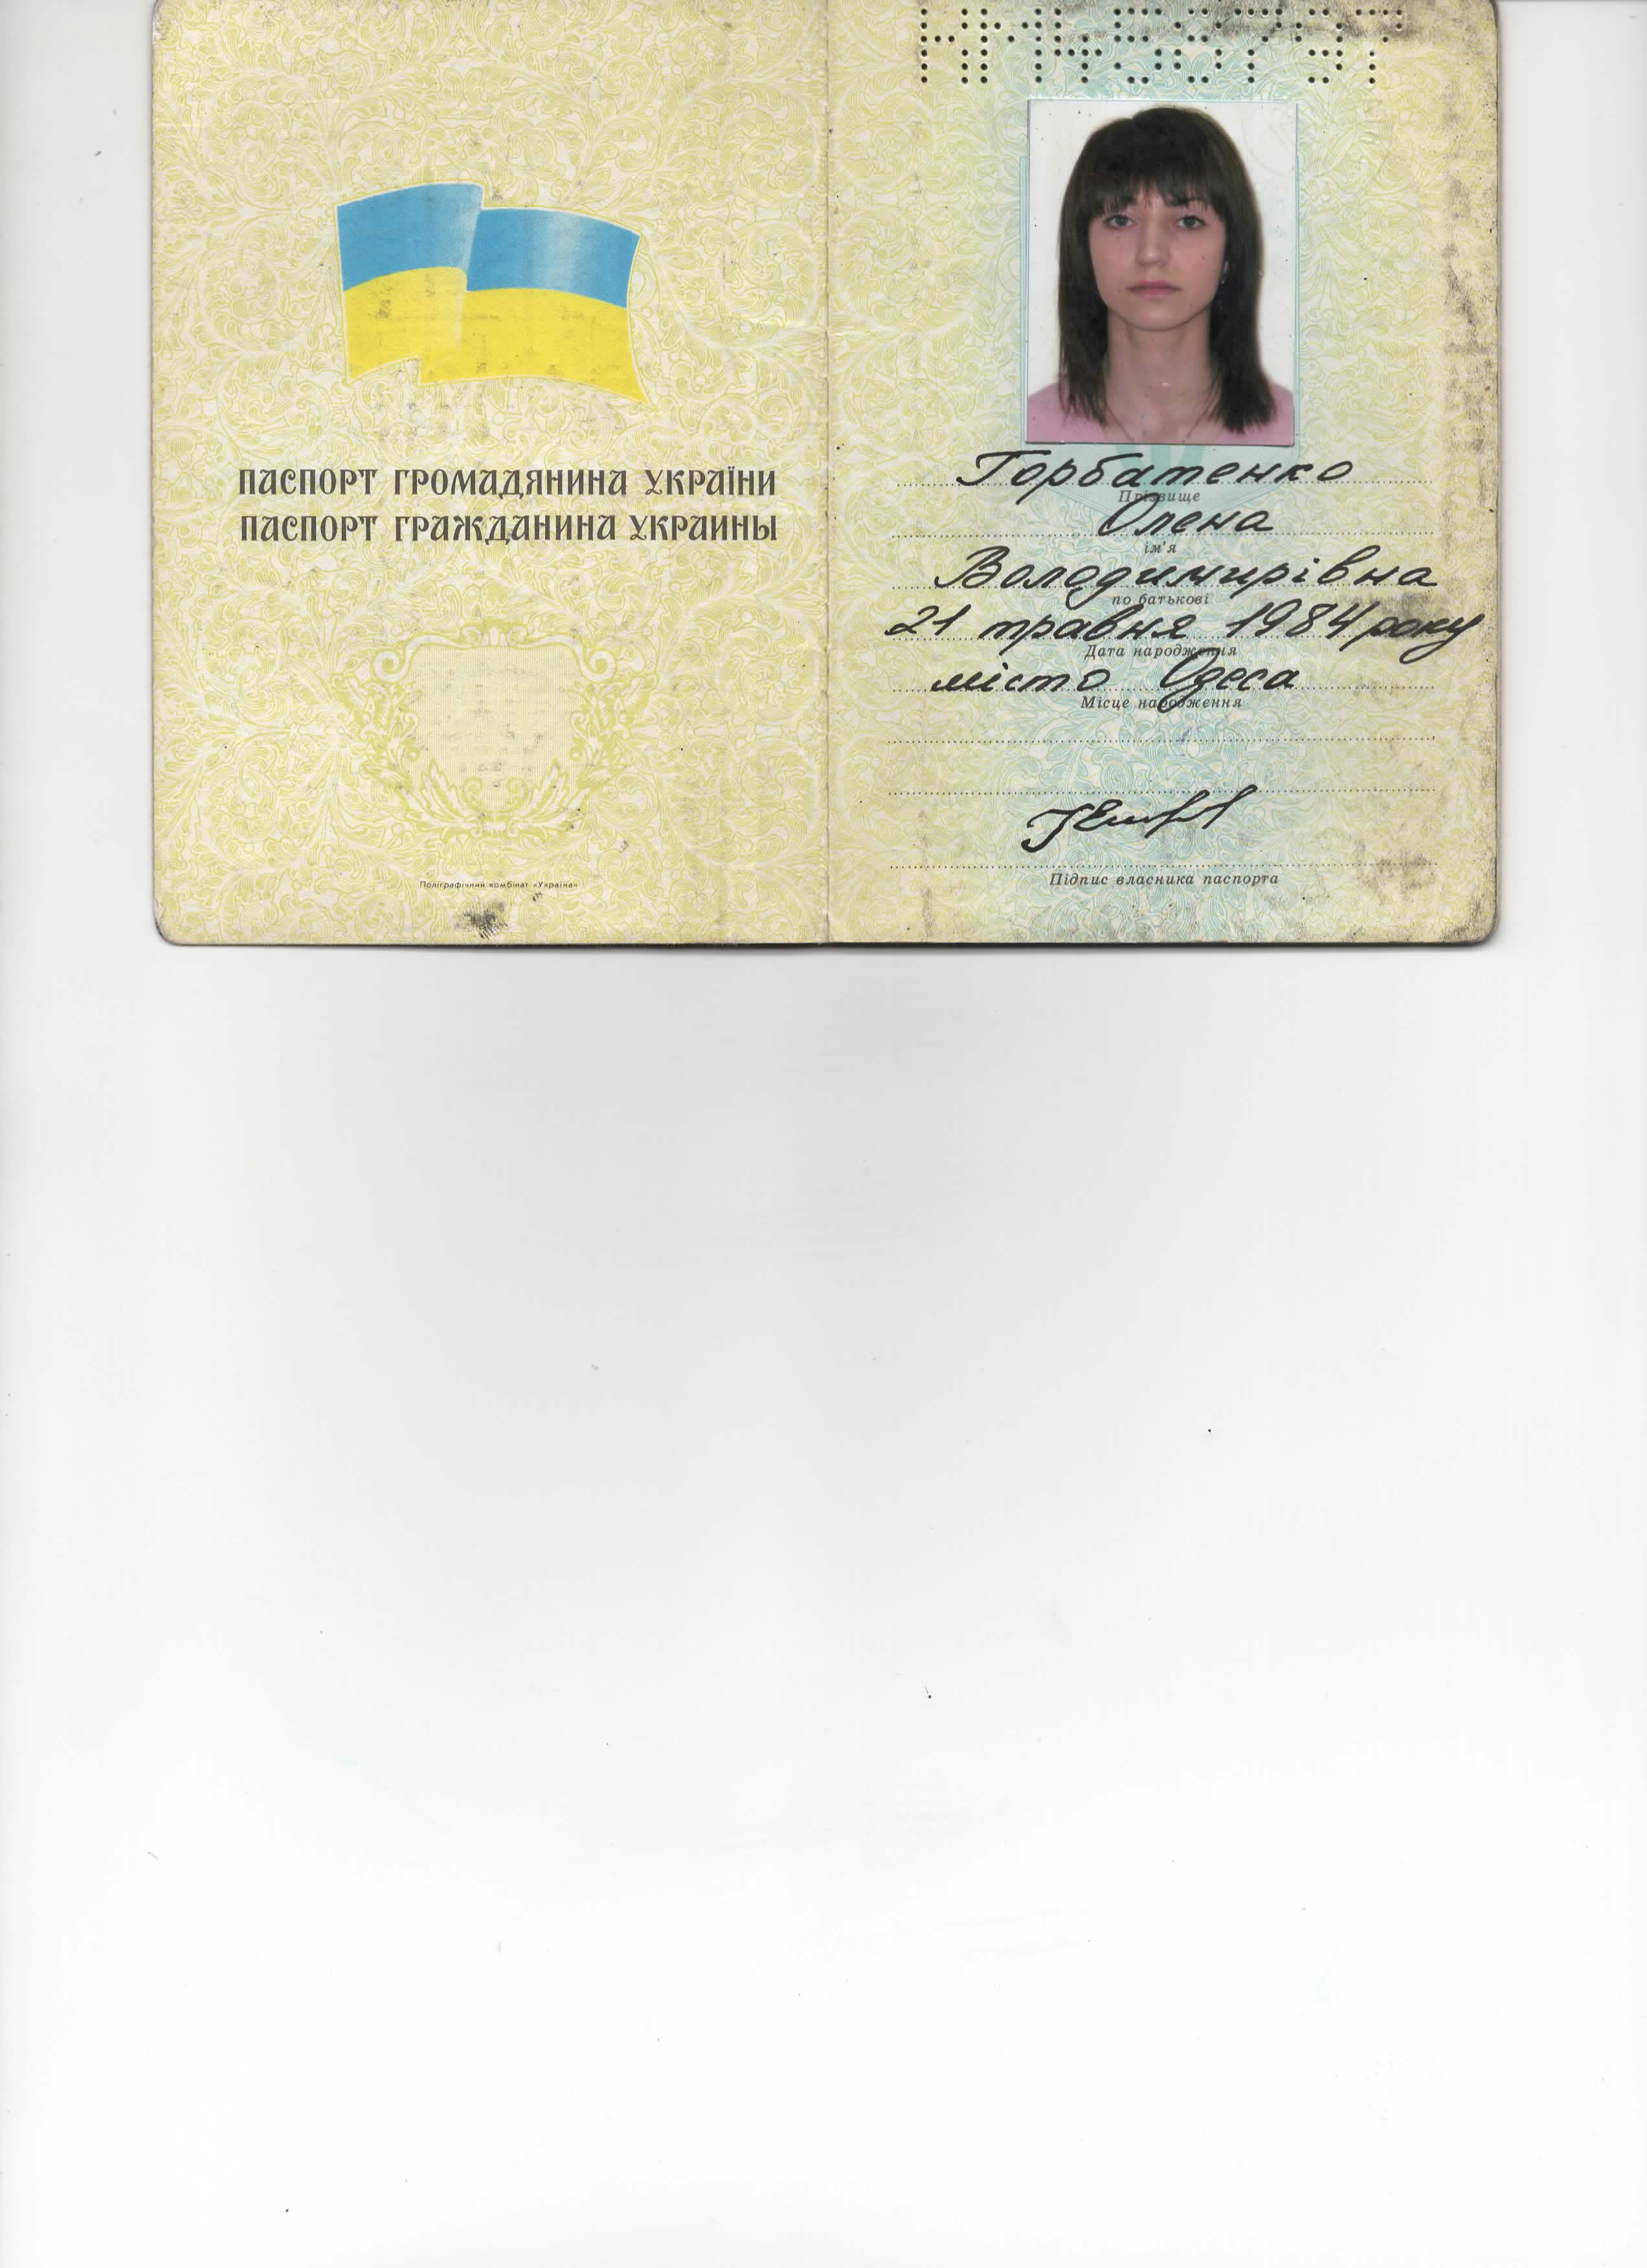 ПАСПОРТ ГРОМАДЯНИНА УКРАЇНИ
ПАСПОРТ ГРАЖДАНИНА УКРАИНЫ
Поліграфічний комбінат «Україна»
Горбатенко
Прізвище
Олена
ім'я
Володимирівна
по батькові
21 травня 1984 року
Дата народження
місто Одеса
Місце народження
Підпис власника паспорта